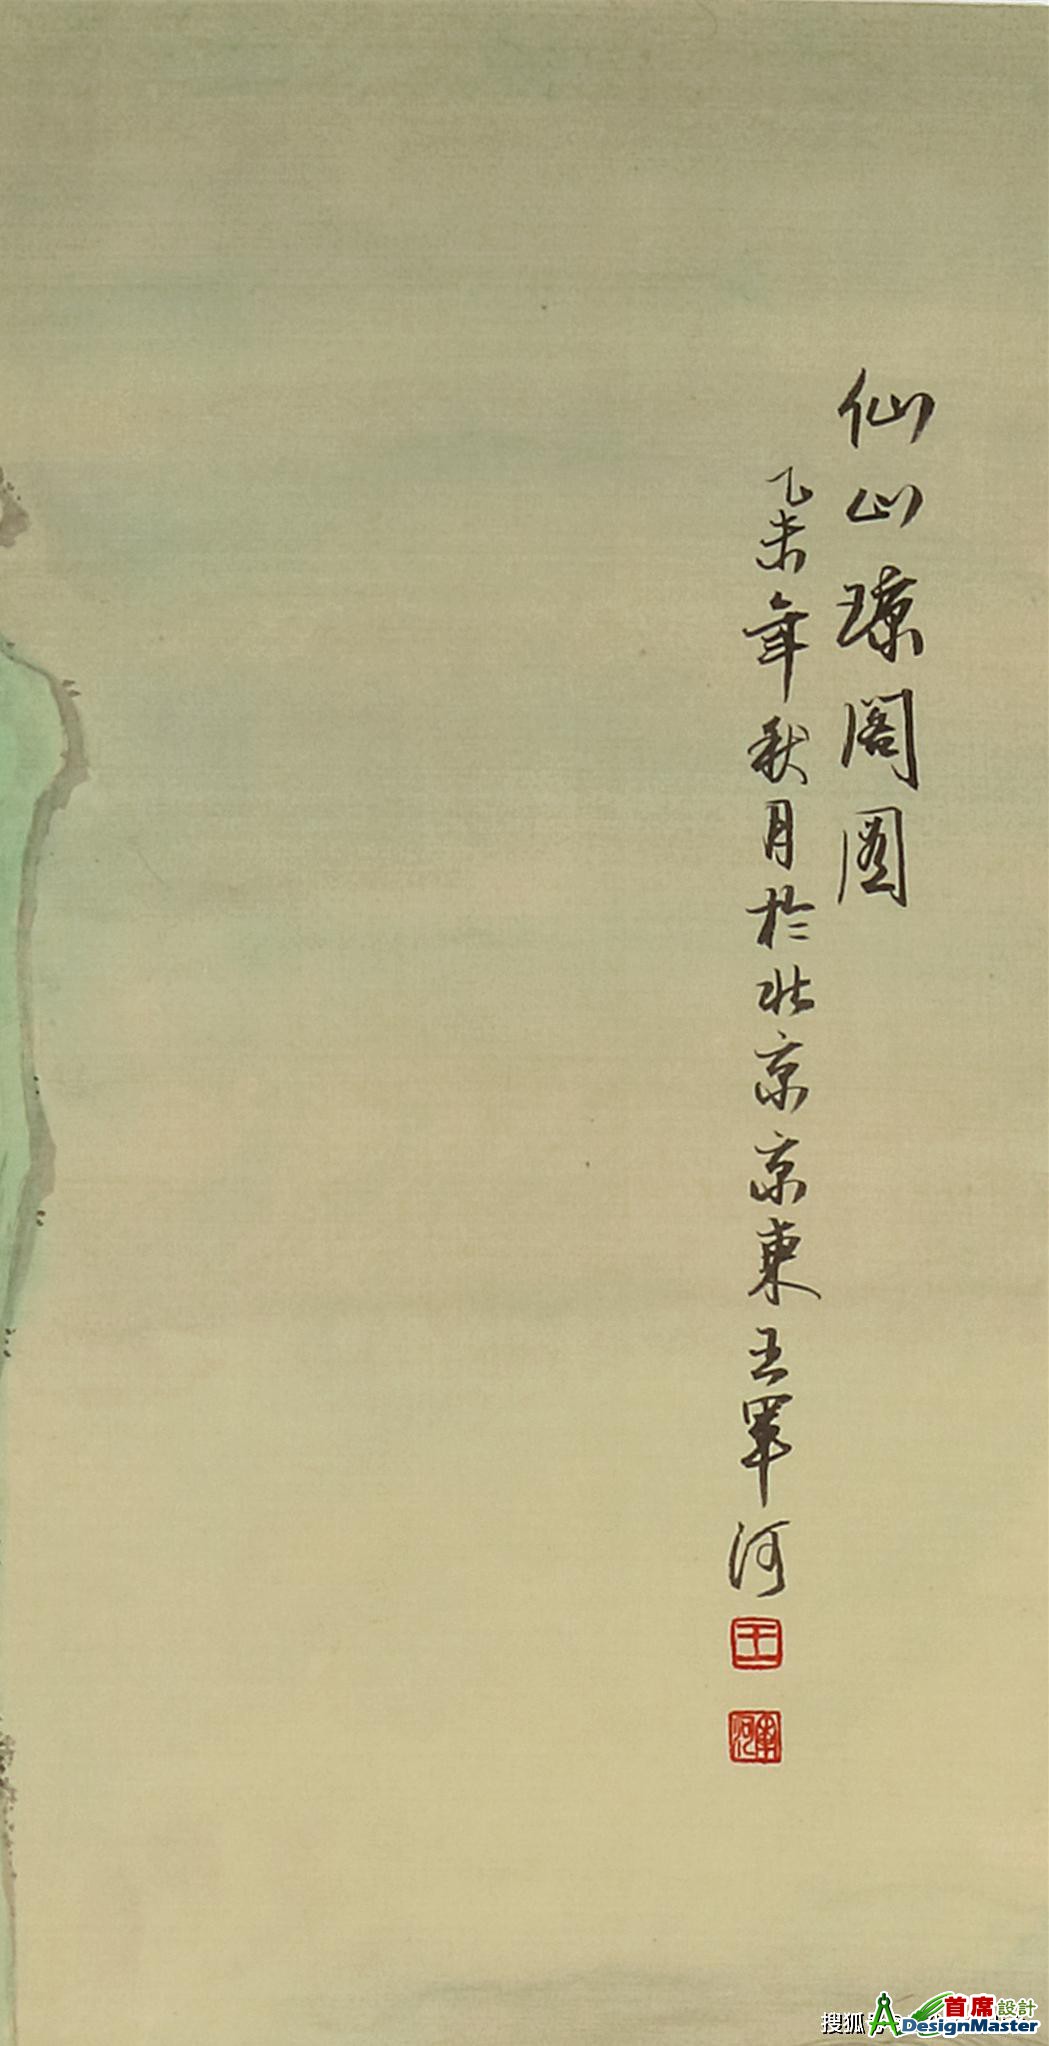 仙山琼阁图
乙未年秋月於北京京東王軍河
王
軍河
搜狐号@
首席設計
DesignMaster